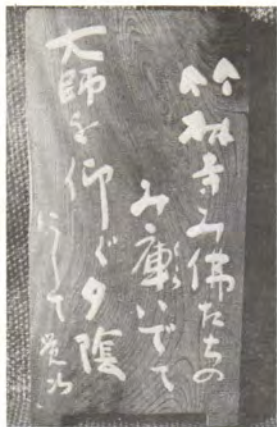 竹林寺み佛たちの
み廟いでて
大師を仰ぐ夕陰
にして